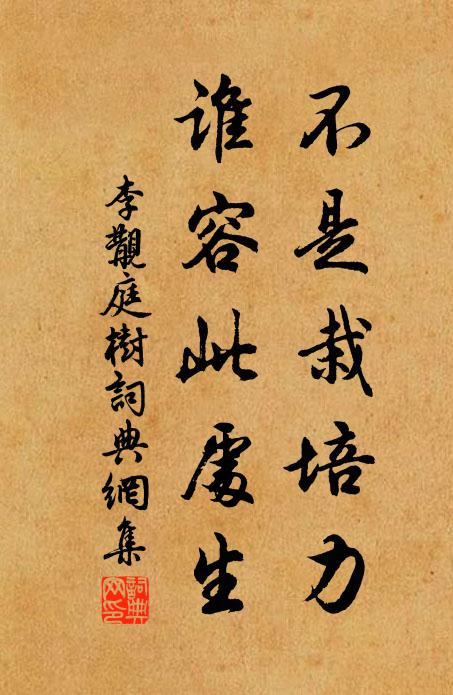 不是栽培力
誰容此處生
李觀庭樹詞典網集
詞典網印